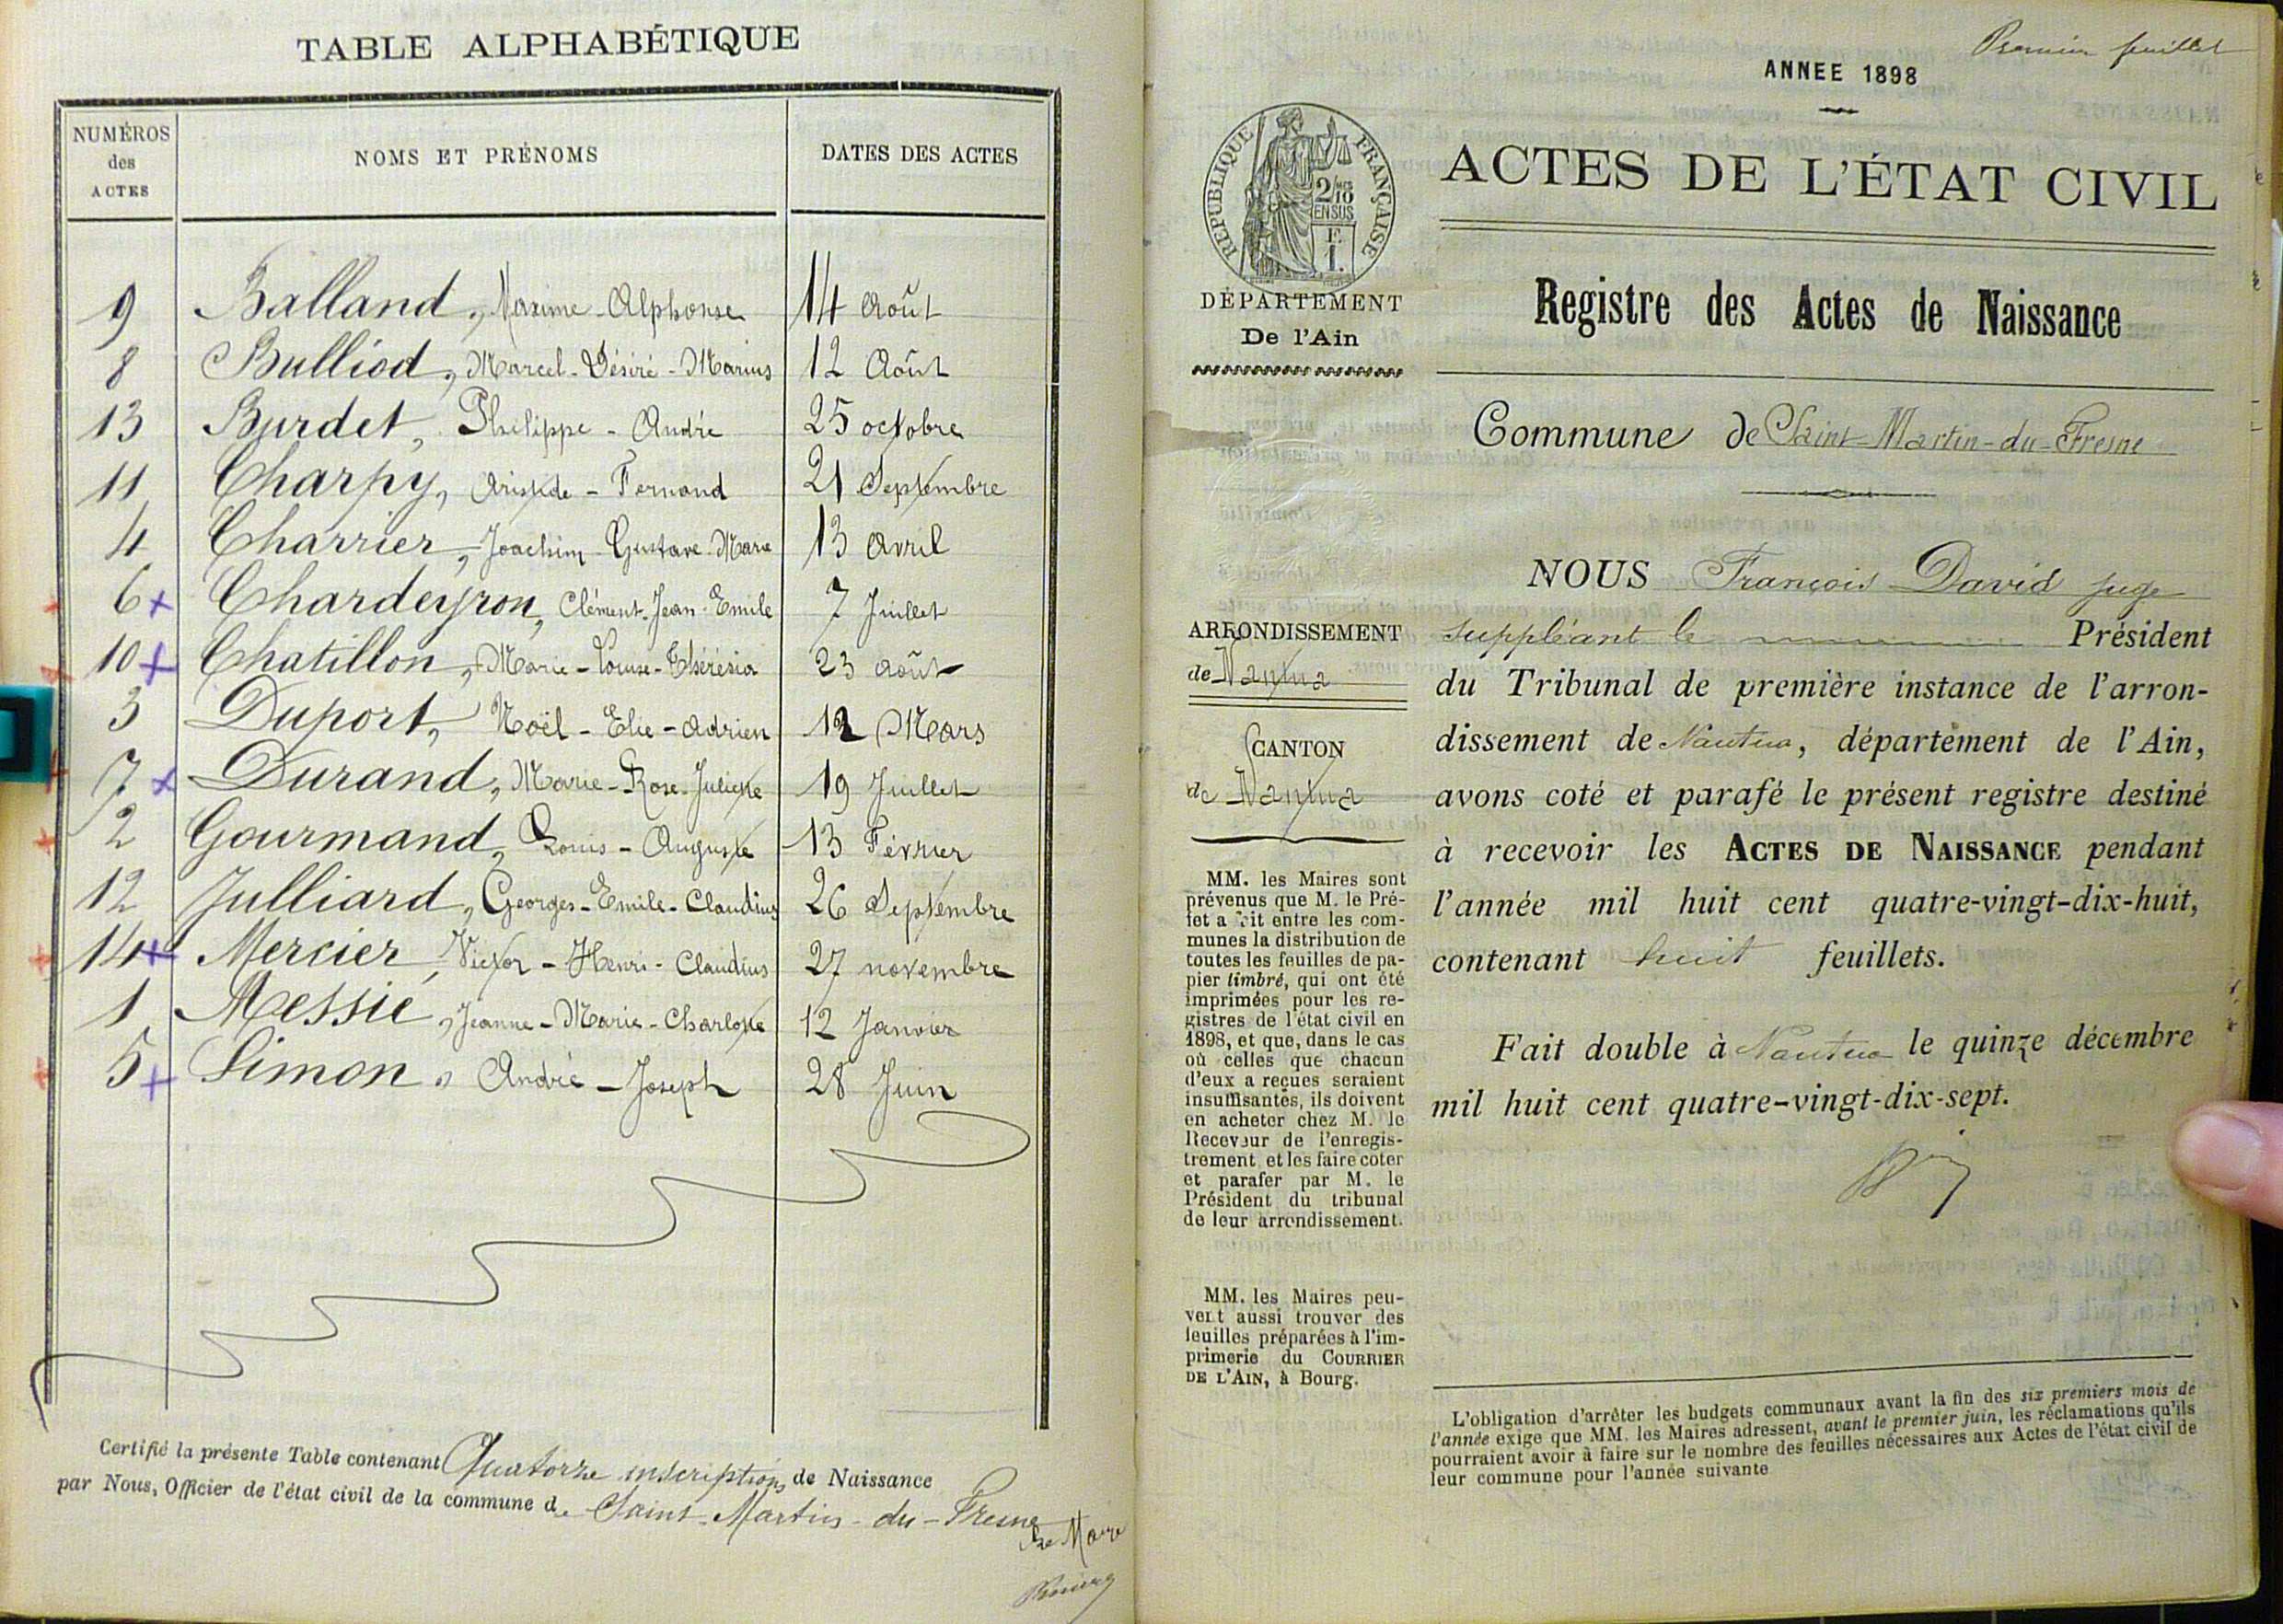 TABLE ALPHABÉTIQUE
NUMÉROS des ACTES | NOMS ET PRÉNOMS | DATES DES ACTES
9 Balland, Maxime-Alphonse 14 Août
8 Bulliod, Marcel-Désiré-Marius 12 Août
13 Burdet, Philippe-André 25 octobre
11 Charpy, Aristide-Fernand 21 Septembre
4 Charrier, Joachim-Gustave-Marie 13 Avril
6 Chardeyron, Clément-Jean-Emile 7 Juillet
10 Chatillon, Marie-Louise-Thérésia 23 Août
3 Duport, Noël-Elie-Adrien 12 Mars
7 Durand, Marie-Rose-Juliette 19 Juillet
2 Gourmand, Louis-Auguste 13 Février
12 Julliard, Georges-Emile-Claudius 26 Septembre
14 Mercier, Victor-Henri-Claudius 27 novembre
1 Messié, Jeanne-Marie-Charlotte 12 Janvier
5 Simon, André-Joseph 28 Juin
Certifié la présente Table contenant Quatorze inscriptions de Naissance
par Nous, Officier de l'état civil de la commune de Saint-Martin-du-Fresne
Le Maire
Premier feuillet
ANNEE 1898
RÉPUBLIQUE FRANÇAISE
2/10
EN SUS
ACTES DE L'ÉTAT CIVIL
DÉPARTEMENT
De l'Ain
Registre des Actes de Naissance
Commune de Saint-Martin-du-Fresne
ARRONDISSEMENT
de Nantua
CANTON
de Nantua
MM. les Maires sont
prévenus que M. le Pré-
fet a fait entre les com-
munes la distribution de
toutes les feuilles de pa-
pier timbré, qui ont été
imprimées pour les re-
gistres de l'état civil en
1898, et que, dans le cas
où celles que chacun
d'eux a reçues seraient
insuffisantes, ils doivent
en acheter chez M. le
Receveur de l'enregis-
trement et les faire coter
et parafer par M. le
Président du tribunal
de leur arrondissement.
MM. les Maires peu-
vent aussi trouver des
feuilles préparées à l'im-
primerie du COURRIER
DE L'AIN, à Bourg.
NOUS François David juge
suppléant le Président
du Tribunal de première instance de l'arron-
dissement de Nantua, département de l'Ain,
avons coté et parafé le présent registre destiné
à recevoir les ACTES DE NAISSANCE pendant
l'année mil huit cent quatre-vingt-dix-huit,
contenant huit feuillets.
Fait double à Nantua le quinze décembre
mil huit cent quatre-vingt-dix-sept.
L'obligation d'arrêter les budgets communaux avant la fin des six premiers mois de
l'année exige que MM. les Maires adressent, avant le premier juin, les réclamations qu'ils
pourraient avoir à faire sur le nombre des feuilles nécessaires aux Actes de l'état civil de
leur commune pour l'année suivante